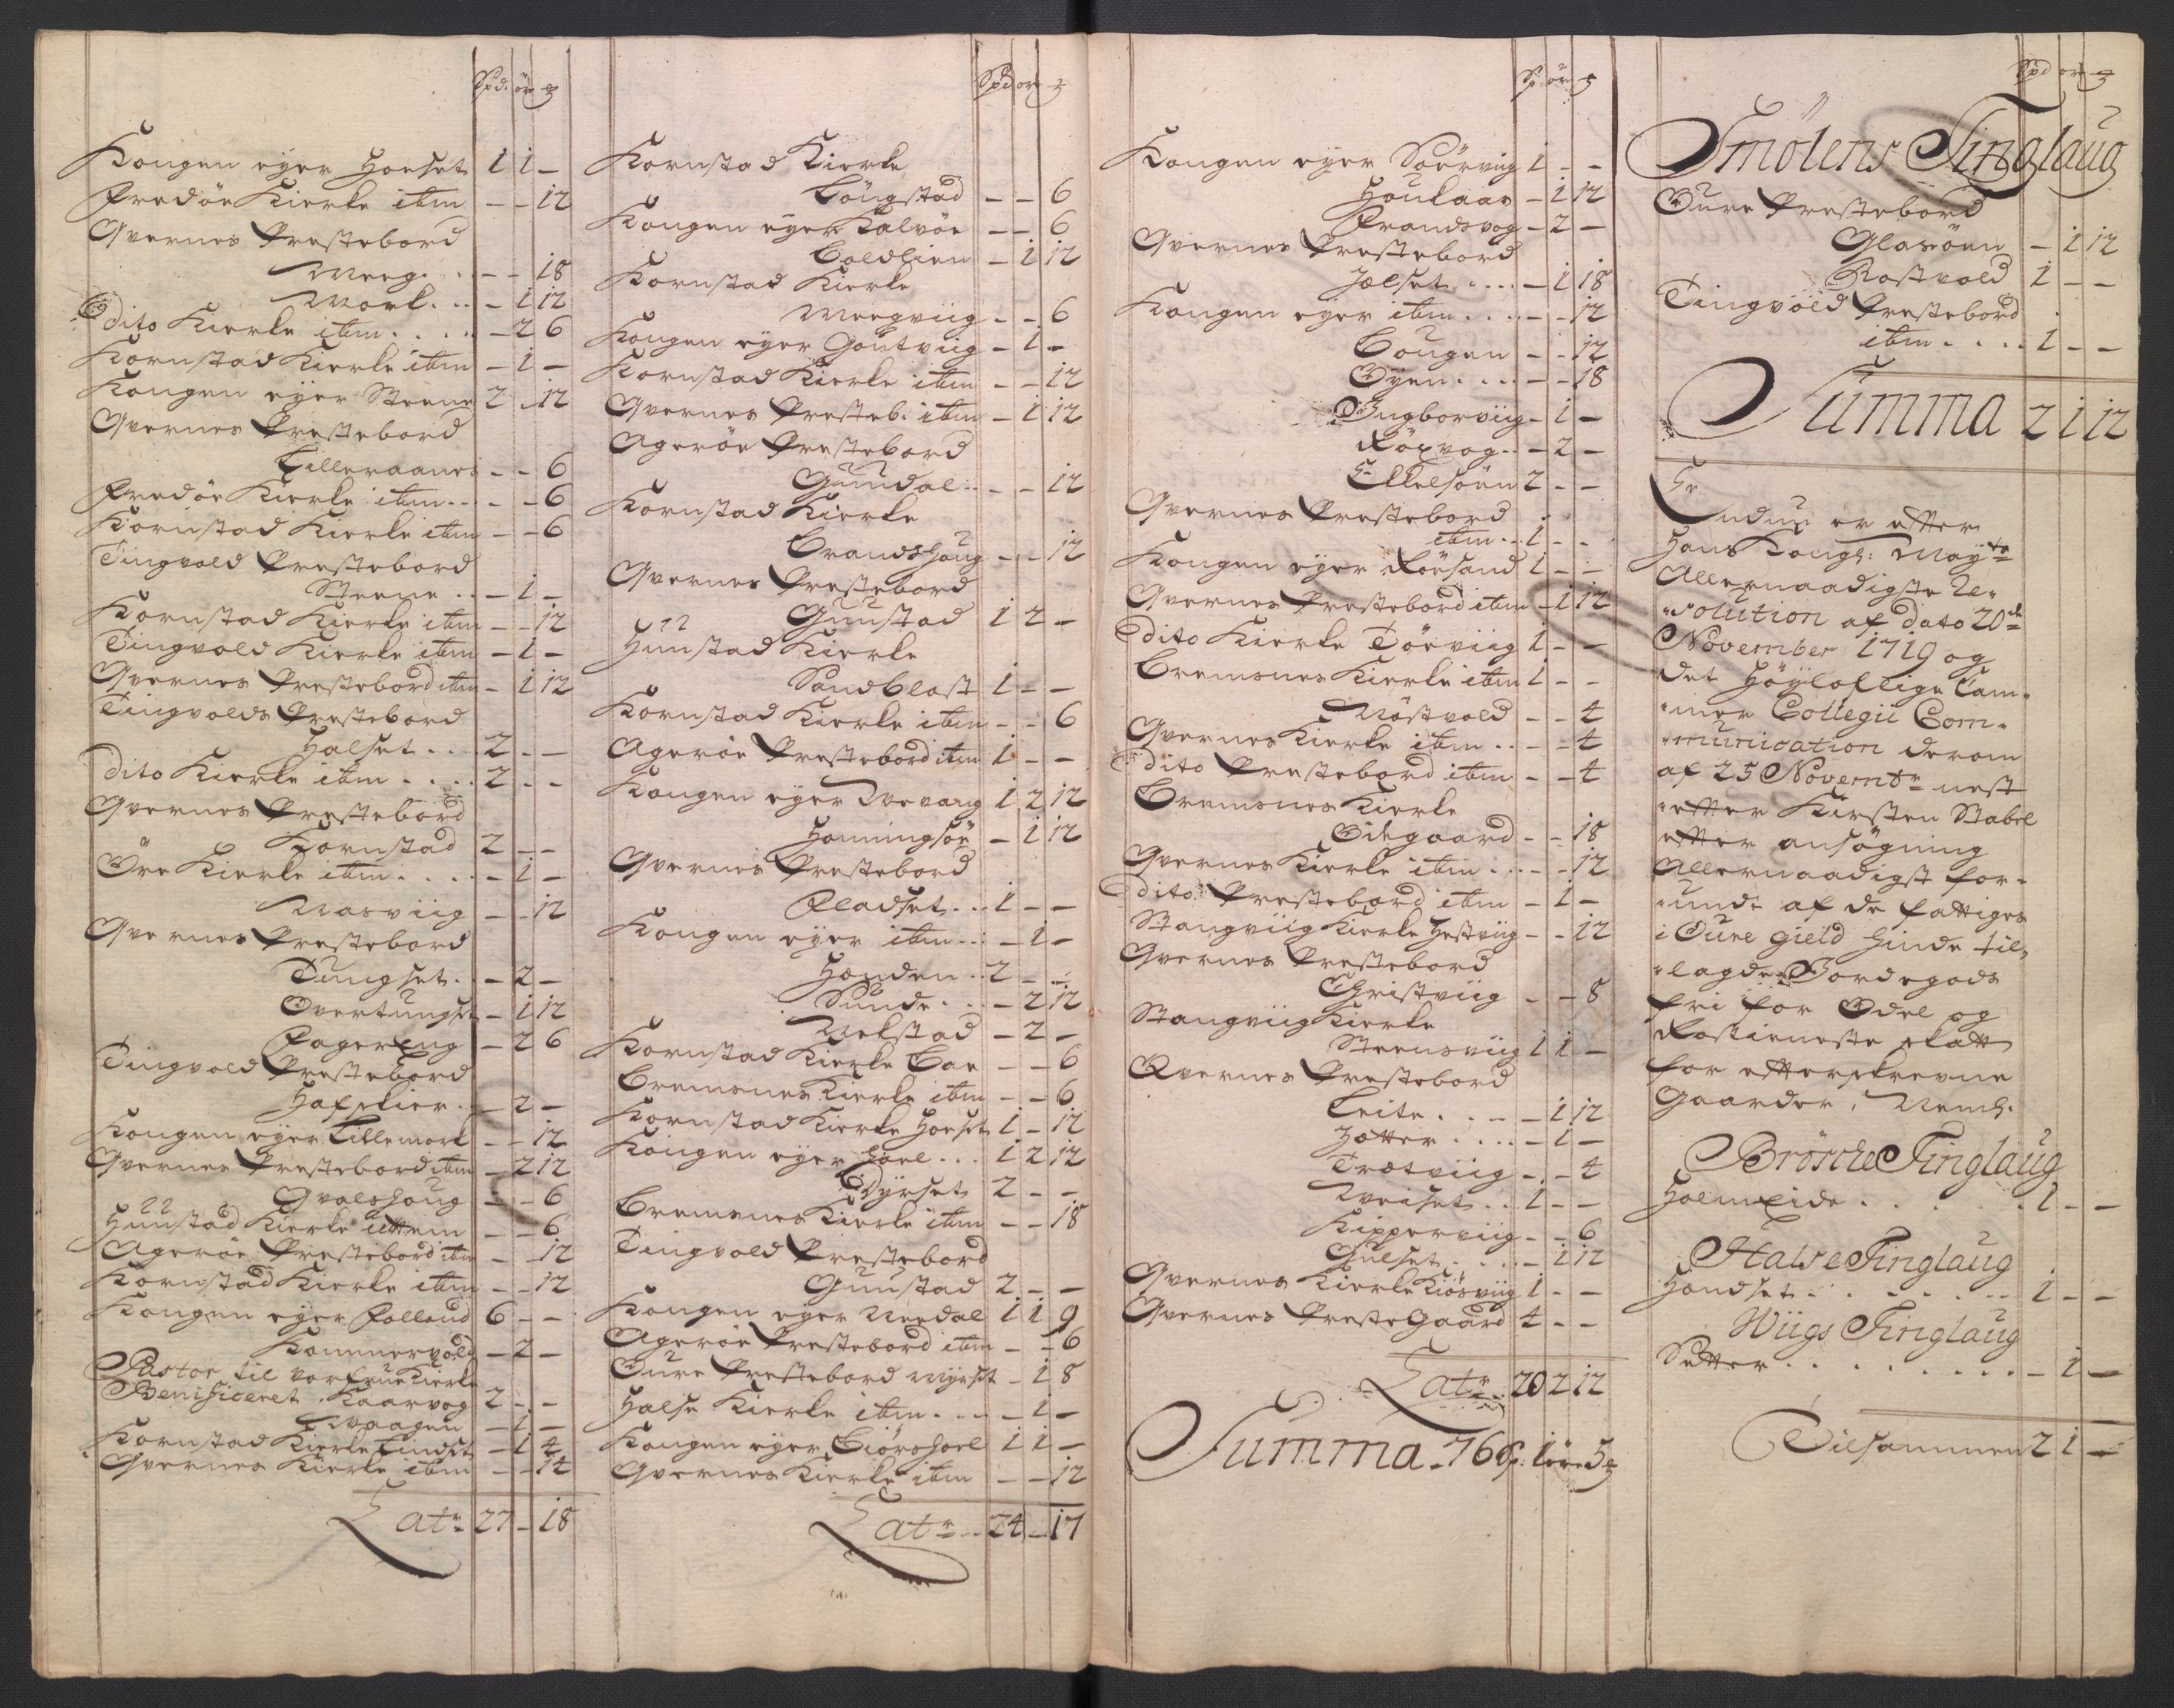 Spd. ör ₰
Kongen eyer Horset 1 1 –
Fredöe Kierke itm – – 12
Qvernes Prestebord
Meeg . . – – 18
Moel . . . – 1 12
Dito Kierke itm . . . . – 2 6
Kornstad Kierke itm – 1 –
Kongen eyer Steene 2 – 12
Qvernes Prestebord
Lilleraanes – – 6
Fredöe Kierke itm . . . – – 6
Kornstad Kierke itm – – 6
Tingvold Prestebord
Steene . . – 1 –
Kornstad Kierke itm – – 12
Tingvold Kierke itm – 1 –
Qvernes Prestebord itm – 1 12
Tingvolds Prestebord
Halset . . . 2 – –
Dito Kierke itm . . . . 2 – –
Qvernes Prestebord
Kornstad 2 – –
Öre Kierke itm . . . . – 1 –
Masviig – – 12
Qvernes Prestebord
Tungset . . – 2 –
Overtungset – 1 12
Fagereng – 2 6
Tingvold Prestebord
Hafskier . . – 2 –
Kongen eyer Lillemork – – 12
Qvernes Prestebord itm – 2 12
Qvalshoug – – 6
Huustad Kierke ittem – – 6
Ageröe Prestebord itm – – 12
Kornstad Kierke itm – – 12
Kongen eyer Folland 6 – –
Kammervold – 2 –
Pastor til vor frue Kierke
Benificeret Kaarvog 2 – –
Vaagen – 1 –
Kornstad Kierke Lindset – 1 4
Qvernes Kierke itm – – 14
Latr 27 – 18
Spd ör ₰
Kornstad Kierke
Långstad – – 6
Kongen eyer Kalvöe – – 6
Boldlien – 1 12
Kornstad Kierke
Meegviig – – 6
Kongen eyer Goutviig – 1 –
Kornstad Kierke itm – – 12
Qvernes Presteb. itm – 1 12
Ageröe Prestebord
Guudal . . – – 12
Kornstad Kierke
Brandshoug – – 12
Qvernes Prestebord
Guustad 1 2 –
Huustad Kierke
Sandblast 1 – –
Kornstad Kierke itm – – 6
Ageröe Prestebord itm 1 – –
Kongen eyer Wevang 1 2 12
Honningsöe – 1 12
Qvernes Prestebord
Fladset . . 1 – –
Kongen eyer itm . . . – 1 –
Hænden . . 2 – –
Sunde . . . – 2 12
Melstad – 2 –
Kornstad Kierke Boe – – 6
Bremsnes Kierke itm – – 6
Kornstad Kierke Hoeset 1 – 12
Kongen eyer Hoel . . . 1 2 12
Dyrset 2 – –
Bremsnes Kierke itm – – 18
Tingvold Prestebord
Guustad 2 – –
Kongen eyer Meedal 1 1 9
Ageröe Prestebord itm – – 6
Oure Prestebord Myrset – 1 8
Halse Kierke itm . . . – 1 –
Kongen eyer Biörshoel 1 1 –
Qvernes Kierke itm – – 12
Latr . . 24 – 17
Sp ör ₰
Kongen eyer Soerviig 1 – –
Houlaas – 1 12
Frandsvog – 2 –
Qvernes Prestebord
Jælset . . . . – 1 18
Kongen eyer itm . . . . – – 12
Bougen – – 12
Öyen . . . . – – 18
Ingborviig – 1 –
Röxvog . . – 2 –
Ekkelsöen 2 – –
Qvernes Prestebord
itm . . . 1 – –
Kongen eyer Röesand 1 – –
Qvernes Prestebord itm – 1 12
Dito Kierke Törviig 1 – –
Bremsnes Kierke itm 1 – –
Nöstvold – – 4
Qvernes Kierke itm . . – – 4
Dito Prestebord itm – – 4
Bremsnes Kierke
Ödegaard – – 18
Qvernes Kierke itm . . . – – 12
Dito Prestebord itm – 1 –
Stangviig Kierke Hestviig – – 12
Qvernes Prestebord
Christviig – – 8
Stangviig Kierke
Steensviig 1 1 –
Qvernes Prestebord
Leite . . – – 1 12
Hotter . . . . – 1 –
Trætviig – – 4
Weiset . . 1 – –
Kipperviig – – 6
Gulset . . . . – 1 12
Qvernes Kierke Kiösviig 1 – –
Qvernes Prestegaard 4 – –
Latr 20 2 12
Summa . 76 sp: 1 öre 5 ₰
Spd ör ₰
Smölens Tinglaug
Oure Prestebord
Glasöen – 1 12
Rostvold 1 – –
Tingvold Prestebord
itm . . . . 1 – –
Summa 2 1 12
Endnu er efter
Hans Kongl: Maytz
Allernaadigste Re-
solution af dato 20de
November 1719 og
det Höyloflige Cam-
mer Collegii Com-
munication derom
af 25 Novembr nest
efter Kirsten Stabel
efter ansögning
Allernaadigst for-
unde af de fattiges
i Oure gield hinde til-
lagde Jordegods
fri for Odel og
Rostieneste skatt
for efterskrevne
Gaarder, Neml.
Brösche Tinglaug
Holmeide . . . . . . 1 – –
Halse Tinglaug
Hændset . . . . . . . 1 – –
Wiigs Tinglaug
Setter . . . . . . . . . – 1 –
Tilsammen 2 1 –